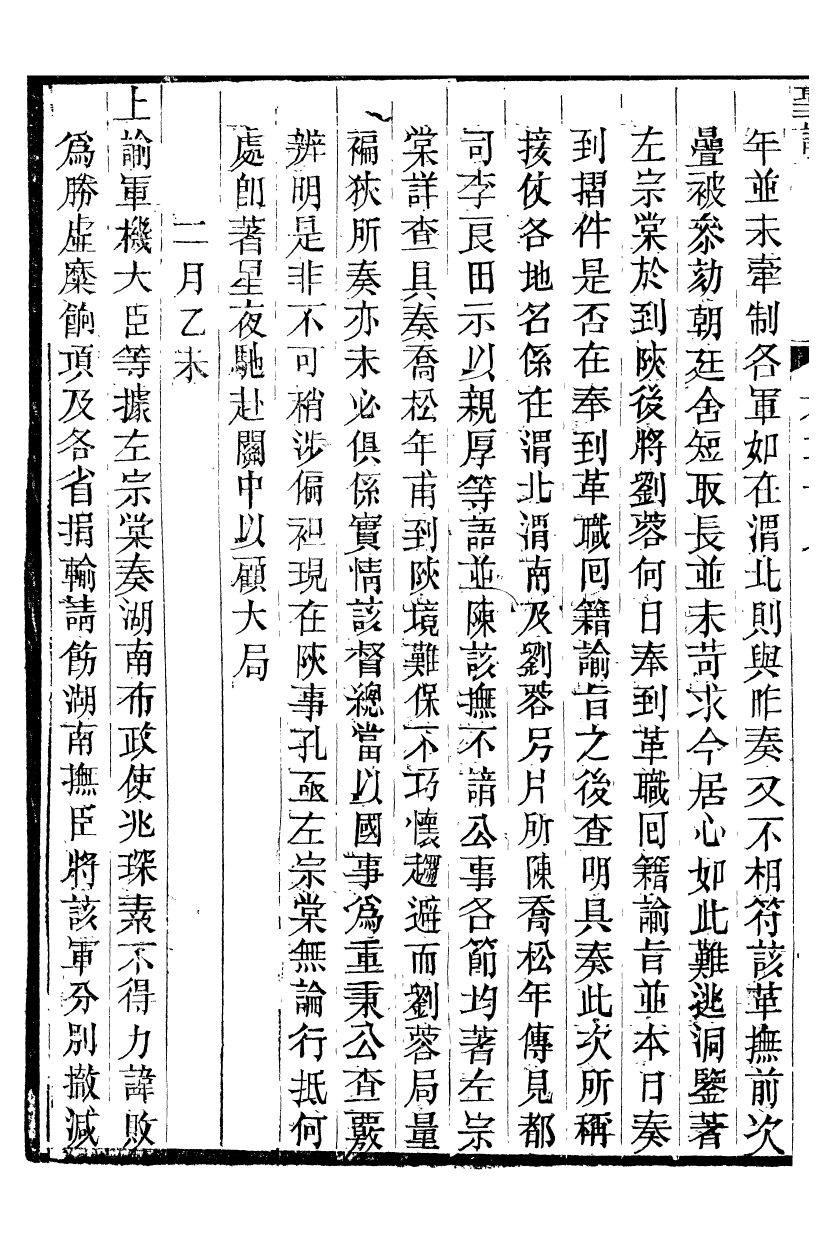 年並未牽制各軍如在渭北則與昨奏又不相符該革撫前次
疊被叅劾朝廷舍短取長並未苛求今居心如此難逃洞鑒著
左宗棠於到陜後將劉蓉何日奉到革職囘籍諭旨並本日奏
到摺件是否在奉到革職囘籍諭旨之後查明具奏此次所稱
接仗各地名係在渭北渭南及劉蓉另片所陳喬松年傳見都
司李良田示以親厚等語並陳該撫不諳公事各節均著左宗
棠詳查具奏喬松年甫到陜境難保不巧懷趨避而劉蓉局量
褊狹所奏亦未必俱係實情該督總當以國事爲重秉公查覈
辨明是非不可稍涉偏袒現在陜事孔亟左宗棠無論行抵何
處卽著星夜馳赴關中以顧大局
二月乙未
上諭軍機大臣等據左宗棠奏湖南布政使兆琛素不得力諱敗
爲勝虛糜餉項及各省捐輸請飭湖南撫臣將該軍分別撤減